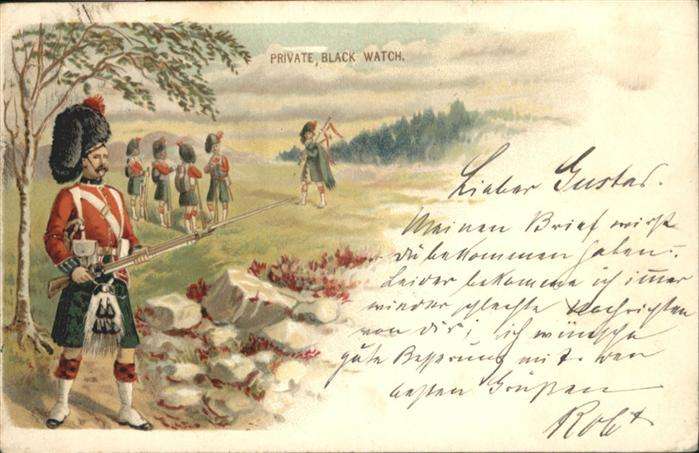 PRIVATE, BLACK WATCH.
Lieber Gustav.
Meinen Brief wirst
du bekommen haben.
Leider bekomme ich immer
wieder schlechte Nachrichten
von dir; ich wünsche
gute Besserung mit den
besten Grüßen
Robt